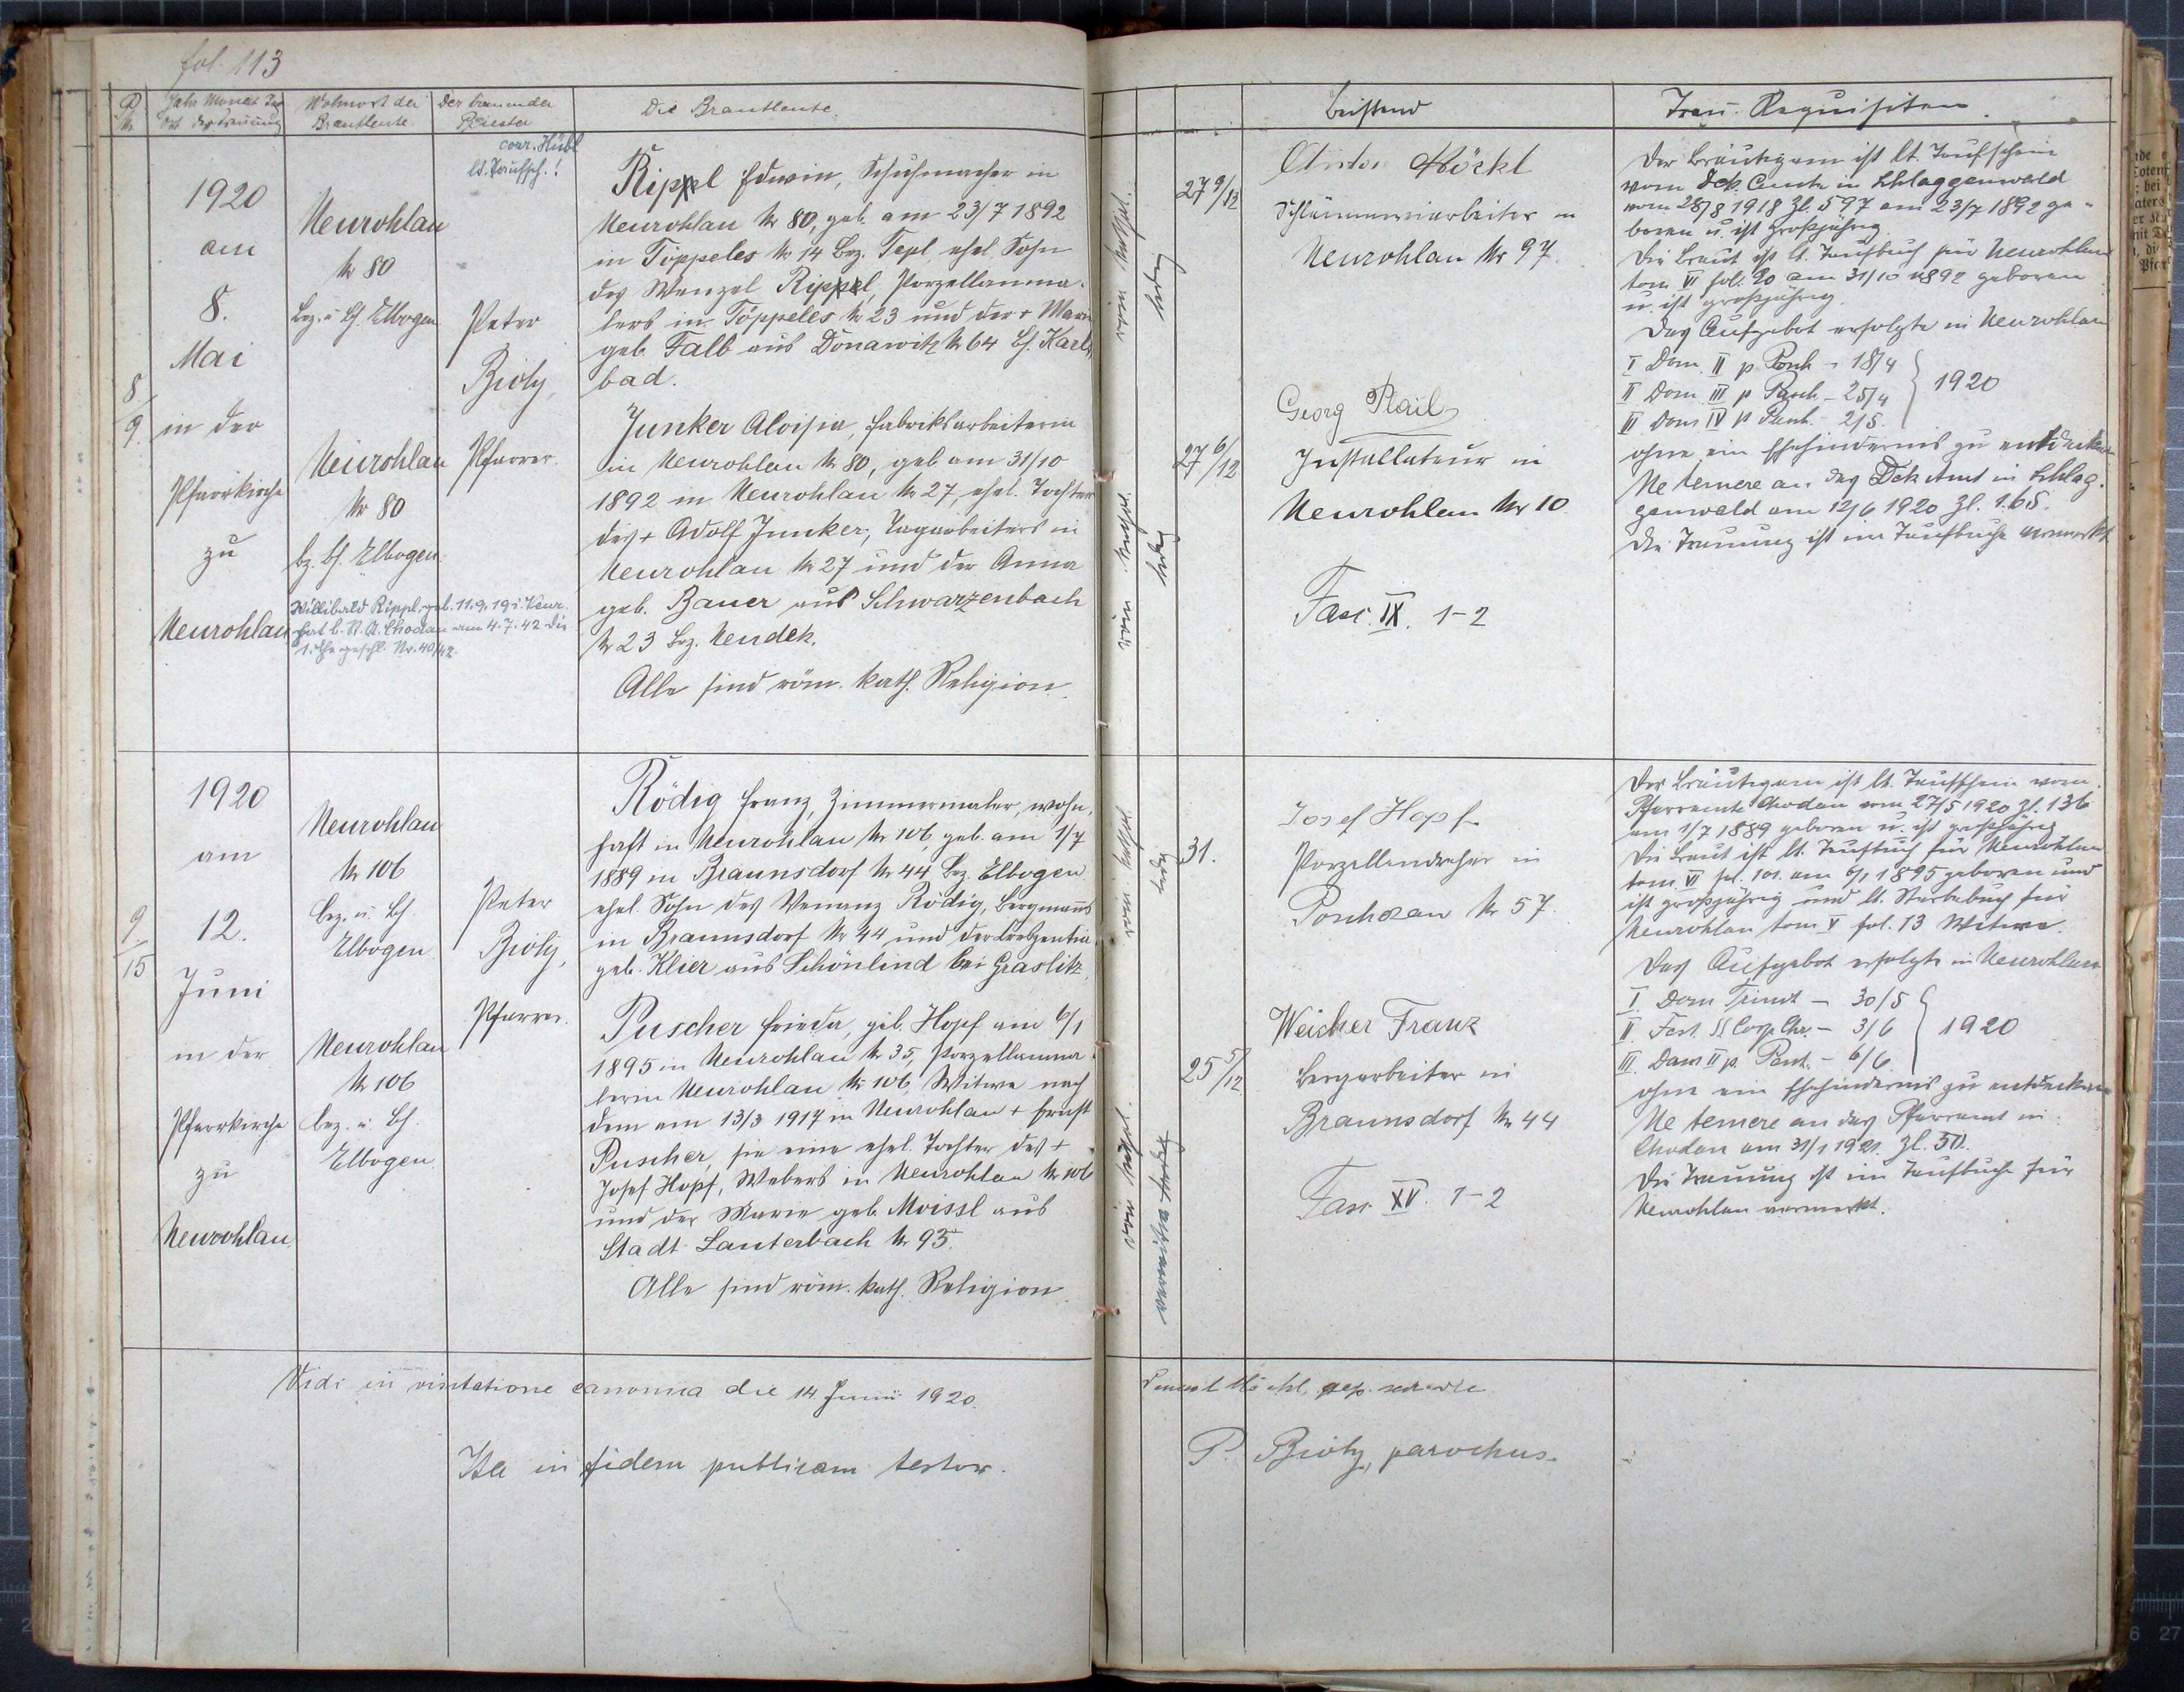 fol. 113
P. Nr.
Jahr Monat Tag
Ort der Trauung
Wohnort der
Brautleute
Der trauende
Priester
Die Brautleute.
Beistand
Trau-Requisiten.
8/9.
1920
am
8.
Mai
in der
Pfarrkirche
zu
Neurohlau
Neurohlau
Nr 80
Bez. u. Bh. Elbogen
Neurohlau
Nr 80
bz. bh. Elbogen
Willibald Rippl, geb. 11.9.19 i. Neur.
hat b. St. A. Chodau am 4.7.42 die
1. Ehe geschl. Nr. 40/42
corr. Hübl
lt. Taufsch.!
Peter
Bioly,
Pfarrer.
Rippl Edwin, Schuhmacher in
Neurohlau Nr 80, geb. am 23/7 1892
in Töppeles Nr 14 Bez. Tepl ehel. Sohn
des Wenzel Rippl, Porzellanma-
lers in Töppeles Nr 23 und der + Marie
geb. Falb aus Donawitz Nr 64 Bh. Karls-
bad.
Junker Aloisia, Fabriksarbeiterin
in Neurohlau Nr 80, geb. am 31/10
1892 in Neurohlau Nr 27, ehel. Tochter
des + Adolf Junker, Tagarbeiters in
Neurohlau Nr 27 und der Anna
geb. Bauer aus Schwarzenbach
Nr 23 Bez. Neudek.
Alle sind röm. kath. Religion.
röm. kathol.
ledig
27 9/12
röm. kathol.
ledig
27 6/12
Anton Höckl
Schlämmereiarbeiter in
Neurohlau Nr 97.
Georg Rail
Installateur in
Neurohlau Nr 10
Fasc. IX. 1-2
Der Bräutigam ist lt. Taufschein
vom Dek. Amte in Schlaggenwald
vom 28/8 1918 Zl. 597 am 23/7 1892 ge-
boren u. ist großjährig.
Die Braut ist lt. Taufbuch für Neurohlau
tom VI fol. 20 am 31/10 1892 geboren
u. ist großjährig.
Das Aufgebot erfolgte in Neurohlau
I Dom. II p Pasch - 18/4
II Dom. III p Pasch - 25/4 } 1920
III Dom IV p Pasch - 2/5.
ohne ein Ehehindernis zu entdecken
Ne temere an das Dek. Amt in Schlag-
genwald am 12/6 1920 Zl. 165.
Die Trauung ist im Taufbuche vermerkt
9./15
1920
am
12.
Juni
in der
Pfarrkirche
zu
Neurohlau
Neurohlau
Nr 106
bez. u. Bh.
Elbogen
Neurohlau
Nr 106
bez. u. Bh.
Elbogen
Peter
Bioly,
Pfarrer.
Rödig Franz, Zimmermaler, wohn-
haft in Neurohlau Nr 106, geb. am 1/7
1889 in Braunsdorf Nr 44 Bez. Elbogen
ehel. Sohn des Venanz Rödig, Bergmanns
in Braunsdorf Nr 44 und der Kreszentia
geb. Klier aus Schönlind bei Graslitz.
Puscher Frieda, geb. Hopf am 6/1
1895 in Neurohlau Nr 35, Porzellanma-
lerin Neurohlau Nr 106, Witwe nach
dem am 13/3 1917 in Neurohlau + Ernst
Puscher, sie eine ehel. Tochter des +
Josef Hopf, Webers in Neurohlau Nr 106
und der Marie geb. Moissl aus
Stadt Lauterbach Nr 95.
Alle sind röm. kath. Religion
röm. kathol.
ledig
31.
röm. kathol.
verwitwet
25 5/12
Josef Hopf
Porzellandreher in
Poschezau Nr 57
Weicher Franz
Bergarbeiter in
Braunsdorf Nr 44
Fasc XV. 1-2
Der Bräutigam ist lt. Taufschein vom
Pfarramte Chodau vom 27/5 1920 Zl. 136
am 1/7 1889 geboren u. ist großjährig
Die Braut ist lt. Taufbuch für Neurohlau
tom. VI fol. 101. am 6/1 1895 geboren und
ist großjährig und lt. Sterbebuch für
Neurohlau tom V fol. 13 Witwe.
Das Aufgebot erfolgte in Neurohlau
I. Dom Trinit - 30/5
II. Fest. SS Corp. Chr. - 3/6 } 1920
III. Dom II p. Pent. - 6/6.
ohne ein Ehehindernis zu entdecken
Ne temere an das Pfarramt in
Chodau am 31/1 1921. Zl. 50.
Die Trauung ist im Taufbuche für
Neurohlau vermerkt.
Vidi in visitatione canonica die 14. Junii 1920.
Ita in fidem publicam testor.
P. Bioly, parochus.